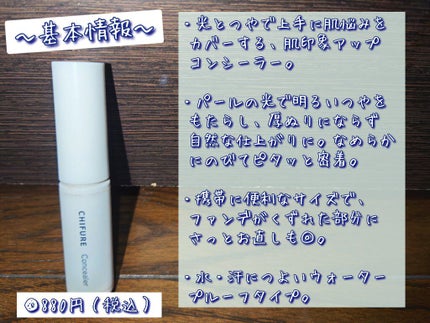 ～基本情報～
・光とつやで上手に肌悩みを
カバーする、肌印象アップ
コンシーラー。
・パールの光で明るいつやを
もたらし、厚ぬりにならず
自然な仕上がりに。なめらか
にのびてピタッと密着。
・携帯に便利なサイズで、
ファンデがくずれた部分に
さっとお直しも◎。
・水・汗につよいウォーター
プルーフタイプ。
CHIFURE Concealer
◎880円（税込）